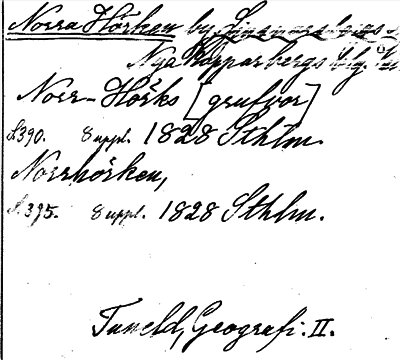 Norra Hörken by
Nya Kopparbergs
Norr-Hörks [grufvor]
S. 390. 8 uppl. 1828 Sthlm.
Norrhörken,
S. 395. 8 uppl. 1828 Sthlm.
Tuneld, Geografi. II.